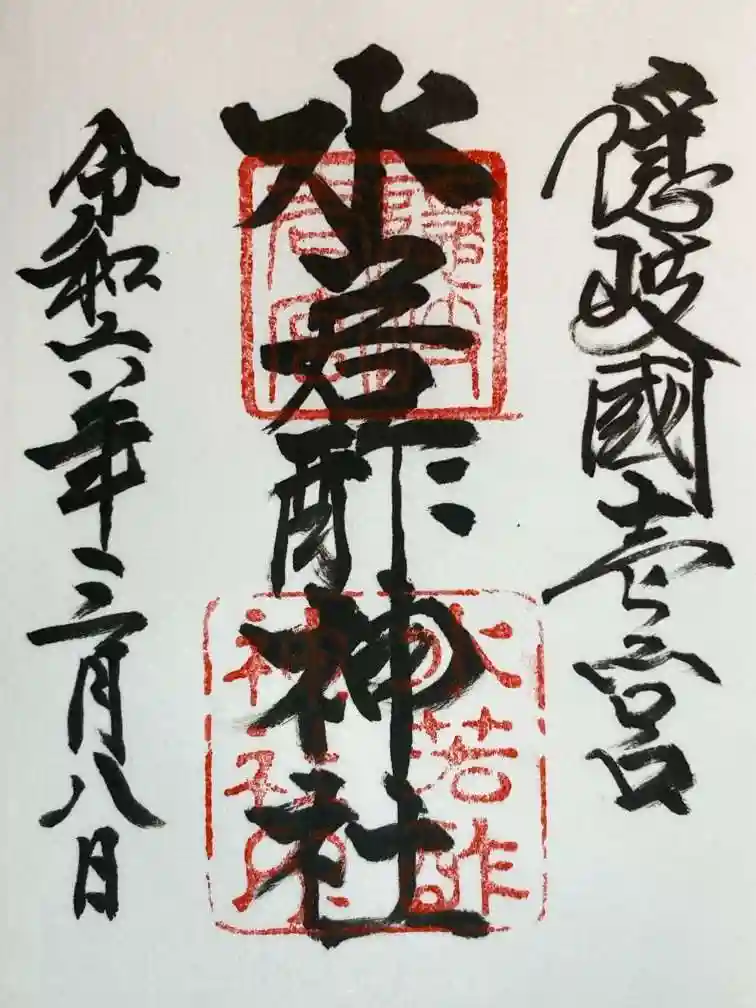 隠岐國壱宮
水若酢神社
水若酢
神社印
令和六年三月八日